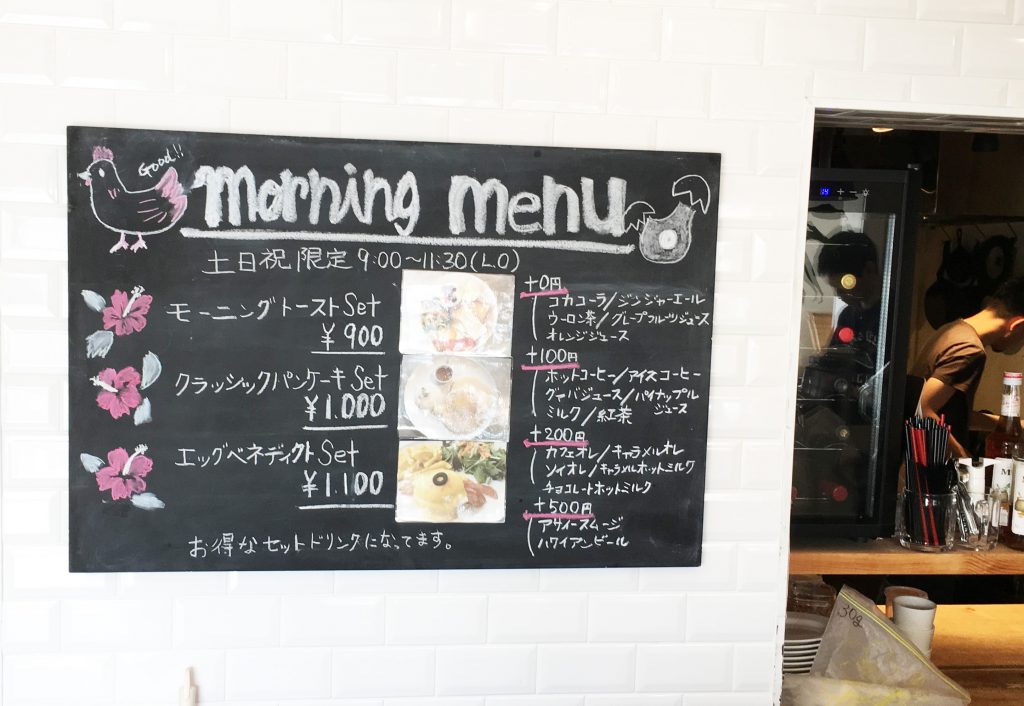 Good!!
morning menu
土日祝限定 9:00～11:30(L.O)
モーニングトーストSet
¥900
クラッシックパンケーキSet
¥1.000
エッグベネディクトSet
¥1.100
お得なセットドリンクになってます。
+0円
コカコーラ/ジンジャーエール
ウーロン茶/グレープフルーツジュース
オレンジジュース
+100円
ホットコーヒー/アイスコーヒー
グァバジュース/パイナップル
ミルク/紅茶 ジュース
+200円
カフェオレ/キャラメルオレ
ソイオレ/キャラメルホットミルク
チョコレートホットミルク
+500円
アサイースムージー
ハワイアンビール
30g